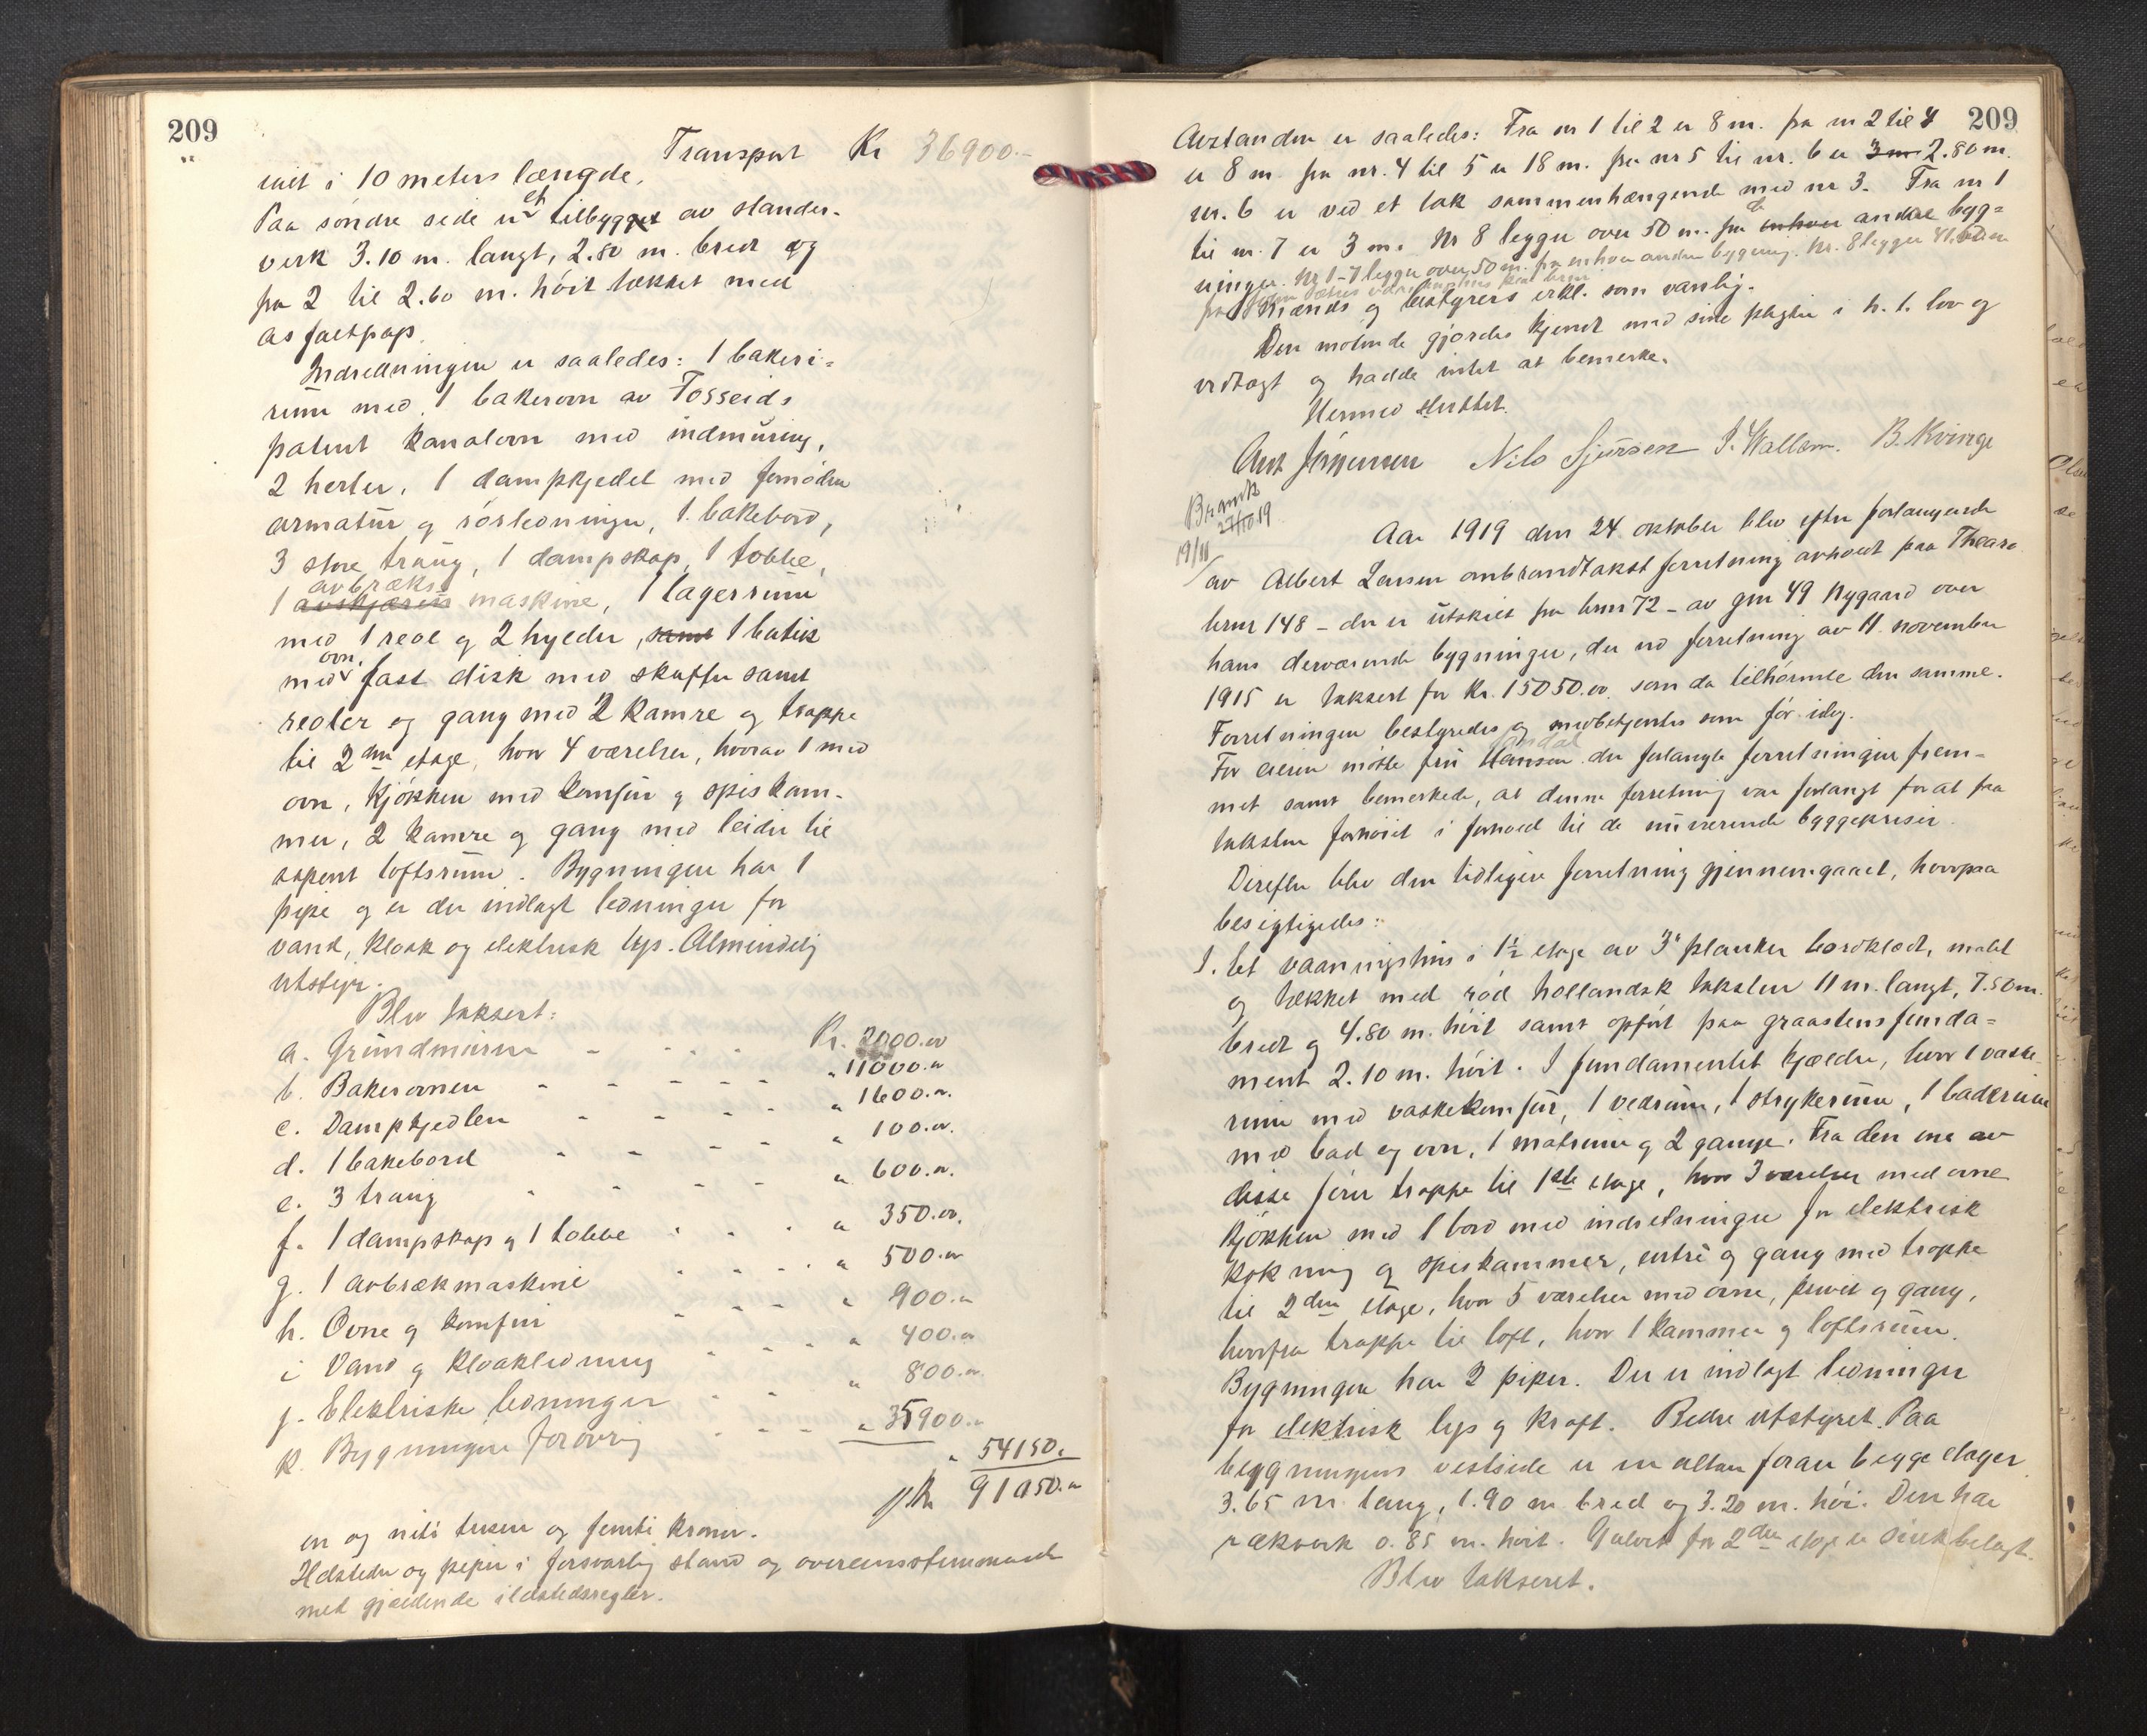 209
Transport Kr 36900.-
i 10 meters længde.
Paa söndre side er et tilbygget av stander-
verk 3.10 m. langt, 2.80 m. bredt og
fra 2 til 2.60 m. höit tækket med
asfaltpap.
Indredningen er saaledes: 1 bakeri-
rum med 1 bakerovn av Tosseids
patent kanalovn med indmuring,
2 herler, 1 dampkjedel med fornöden
armatur og rörledninger, 1 bakebord,
3 store traug, 1 dampskap, 1 tobbe,
1 avbræks maskine, 1 lagerrum
med 1 reol og 2 hylder, samt 1 butik
med ovn, fast disk med skuffer samt
reoler og gang med 2 kamre og trappe
til 2den etage, hvor 4 værelser, hvorav 1 med
ovn, kjökken med komfur og spiskam-
mer, 2 kamre og gang med leider til
aapent loftsrum. Bygningen har 1
pipe og er der indlagt ledninger for
vand, kloak og elektrisk lys. Almindelig
utstyr.
Blev taksert:
a. Grundmuren - - - - Kr. 2000.00
b. Bakerovnen - - - - - " 11000.00
c. Dampkjedlen - - - - " 1600.00
d. 1 bakebord - - - - - " 100.00
e. 3 traug - - - - - " 600.00
f. 1 dampskap og 1 tobbe - - - " 350.00
g. 1 avbrækmaskine - - - - " 500.00
h. Ovne og komfur - - - - " 900.00
i Vand og kloakledning - - - - " 400.00
j. Elektriske ledninger - - - " 800.00
k. Bygningen forövrig - - - - " 35900.00
" 54150.
Kr 91050.00
en og niti tusen og femti kroner.
Ildsteder og piper i forsvarlig stand og overensstemmende
med gjældende ildstedsregler.
209
Avstanden er saaledes: Fra nr 1 til 2 er 8 m. fra nr 2 til 4
er 8 m. fra nr. 4 til 5 er 18 m. fra nr 5 til nr. 6 er 3 m 2.80 m.
nr. 6 er ved et tak sammenhængende med nr 3. Fra nr 1
til nr. 7 er 3 m. Nr 8 ligger over 50 m. fra enhver de andre byg-
ninger. Nr 1-7 ligger over 50 m. fra enhver anden bygning. Nr. 8 ligger
mænds og bestyrers erkl. som vanlig.
Den mötende gjordes kjendt med sine pligter i h. t. lov og
vedtægt og hadde intet at bemerke.
Hermed sluttet.
Nils Sjursen B. Kvinge
27/10 19
19/11
Aar 1919 den 24 oktober blev efter forlangende
av Albert Larsen ombrandtakst forretning avholdt paa
brnr 148 - der er utskilt fra brnr 72 - av gnr 49 Nygaard over
hans derværende bygninger, der ved forretning av 11 november
1915 er taksert for Kr. 15050.00 som da tilhörende den samme.
Forretningen bestyredes og medbetjentes som för. idag.
For eieren mötte fru Hansen der forlangte forretningen frem-
met samt bemerkede, at denne forretning var forlangt for at faa
taksten forhöiet i forhold til de nuværende byggepriser.
Derefter blev den tidligere forretning gjennemgaaet, hvorpaa
besigtigedes:
1. Et vaaningshus i 1½ etage av 3" planker bordklædt, malet
og tækket med röd hollandsk taksten 11 m. langt, 7.50 m.
bredt og 4.80 m. höit samt opfört paa graastensfunda-
ment 2.10 m. höit. I fundamentet kjelder, hvor 1 vaske
rum med vaskekomfur, 1 vedrum, 1 strykerum, 1 baderum
med bad og ovn, 1 matrum og 2 gange. Fra den ene av
disse förer trappe til 1ste etage, hvor 3 værelser med ovne
kjökken med 1 bord med indretninger for elektrisk
kokning og spiskammer, entré og gang med trappe
til 2den etage, hvor 5 værelser med ovne, privét og gang,
hvorfra trappe til loft, hvor 1 kammer og loftsrum.
Bygningen har 2 piper. Der er indlagt ledninger
for elektrisk lys og kraft. Bedre utstyret. Paa
bygningens vestside er en altan foran begge etager
3.65 m. lang, 1.90 m bred og 3.20 m. höi. Den har
rækverk 0.85 m. höit. Gulvet for 2den etage er sinkbelagt.
Blev takseret.